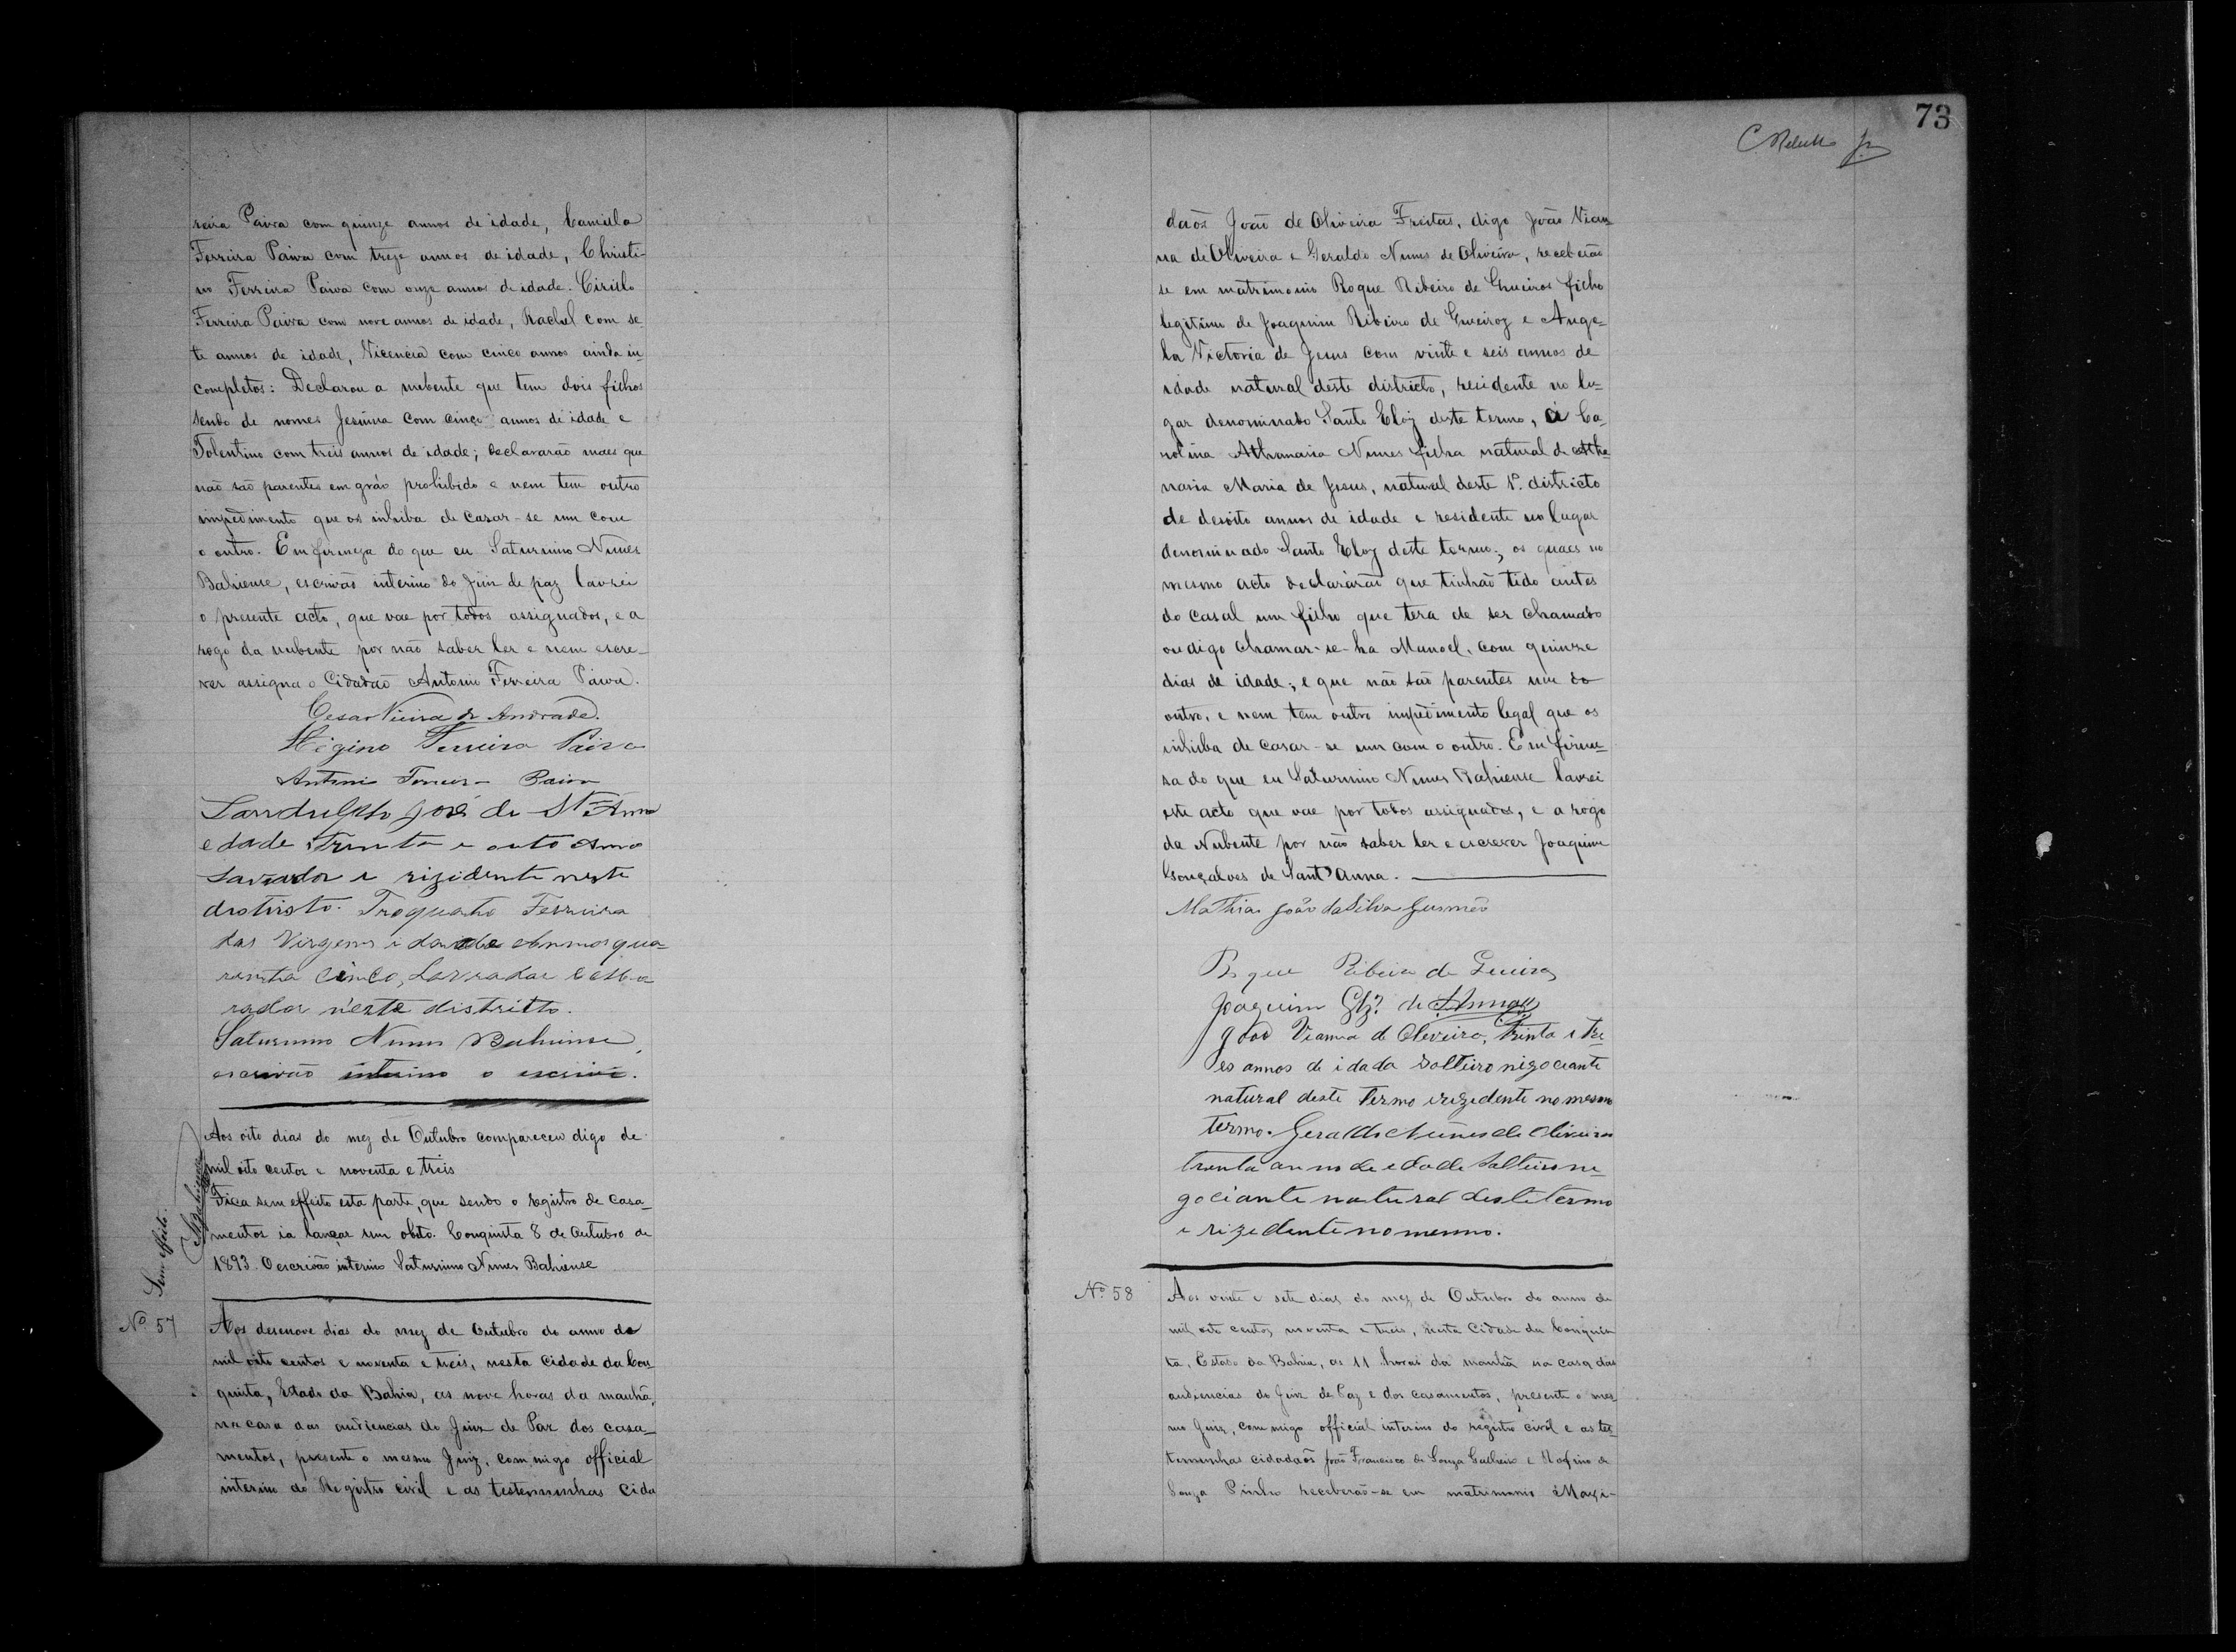 reira Paiva com quinze annos de idade, Camilla
Ferreira Paiva com treze annos de idade, Christi-
no Ferreira Paiva com onze annos de idade. Cirillo
Ferreira Paiva com nove annos de idade, Rachel com se
te annos de idade, Vicencia com cinco annos ainda in-
completos: Declarou a nubente que tem dois filhos
sendo de nomes Jesuina com cinco annos de idade e
Tolentino com treis annos de idade; declararão mais que
não são parentes em gráo prohibido e nem tem outro
impedimento que os inhiba de casar-se um com
o outro. Em firmeza do que eu Saturnino Nunes
Bahiense, escrivão interino do Juiz de paz lavrei
o presente acto, que vae por todos assignados, e a
rogo da nubente por não saber ler e nem escre-
ver assigna o Cidadão Antonio Ferreira Paiva.
Cesar Vieira de Andrade.
Higino Ferreira Paiva
Antonio Ferreira Paiva
Landulpho José de St Anna
edade trinta e outo Anno
Lavrador e rizidente neste
distristo. Troquato Ferreira
das Virgens idade Annos qua-
renta cinco, Lavrador e
rador n'este distritto.
Saturnino Nunes Bahiense,
escrivão interino o escrivi.
Aos oito dias do mez de Outubro compareceu digo de
mil oito centos e noventa e treis
Fica sem effeito esta parte, que sendo o registro de casa-
mentos ia lançar um obito. Conquista 8 de Outubro de
1893. O escrivão interino Saturnino Nunes Bahiense
Sem effeito.
Nº 57
Aos desenove dias do mez de Outubro do anno de
mil oito centos e noventa e treis, nesta Cidade da Con-
quista, Estado da Bahia, as nove horas da manhã,
na casa das audiencias do Juiz de Paz dos casa-
mentos, presente o mesmo Juiz, commigo official
interino do Registro civil e as testemunhas Cida
73
daõs João de Oliveira Freitas, digo João Vian-
na de Oliveira e Geraldo Nunes de Oliveira, receberão
se em matrimonio Roque Ribeiro de Queiros filho
legitimo de Joaquim Ribeiro de Queiroz e Ange-
la Victoria de Jesus com vinte e seis annos de
idade natural deste districto, residente no lu-
gar denominado Santo Eloy deste termo, á Ca-
rolina Athanasia Nunes filha natural de Atha-
nasia Maria de Jesus, natural deste 1º. districto
de desoito annos de idade e residente no lugar
denominado Santo Eloy deste termo; os quaes no
mesmo acto declararão que tinhão tido antes
do casal um filho que tera de ser chamado
ou digo chamar-se-ha Manoel, com quinze
dias de idade; e que não são parentes um do
outro, e nem tem outro impedimento legal que os
inhiba de casar-se um com o outro. Em firme-
sa do que eu Saturnino Nunes Bahiense lavrei
este acto que vae por todos assignados, e a rogo
da Nubente por não saber ler e escrever Joaquim
Gonçalves de Sant'Anna.
Mathias João da Silva Gusmão
Roque Ribeiro de Queiros
Joaquim Glz. de
João Vianna de Oliveira, trinta e Tre
es annos de idada Solteiro nigociante
natural deste termo e rezidente no mesmo
termo. Geraldo Nunes de Oliveira
trenta anno de edade Solteiro ne
gociante natural deste termo
e rizedente no mesmo.
Nº 58
Aos vinte e sete dias do mez de Outubro do anno de
mil oito centos noventa e treis, nesta Cidade da Conquis-
ta, Estado da Bahia, as 11 horas da manhã na casa das
audiencias do Juiz de Paz e dos casamentos, presente o mes-
mo Juiz, commigo official interino do registro civil e as tes-
temunhas cidadaõs João Francisco de Souza e Rofino de
Souza Pinho receberão-se em matrimonio Maxi-